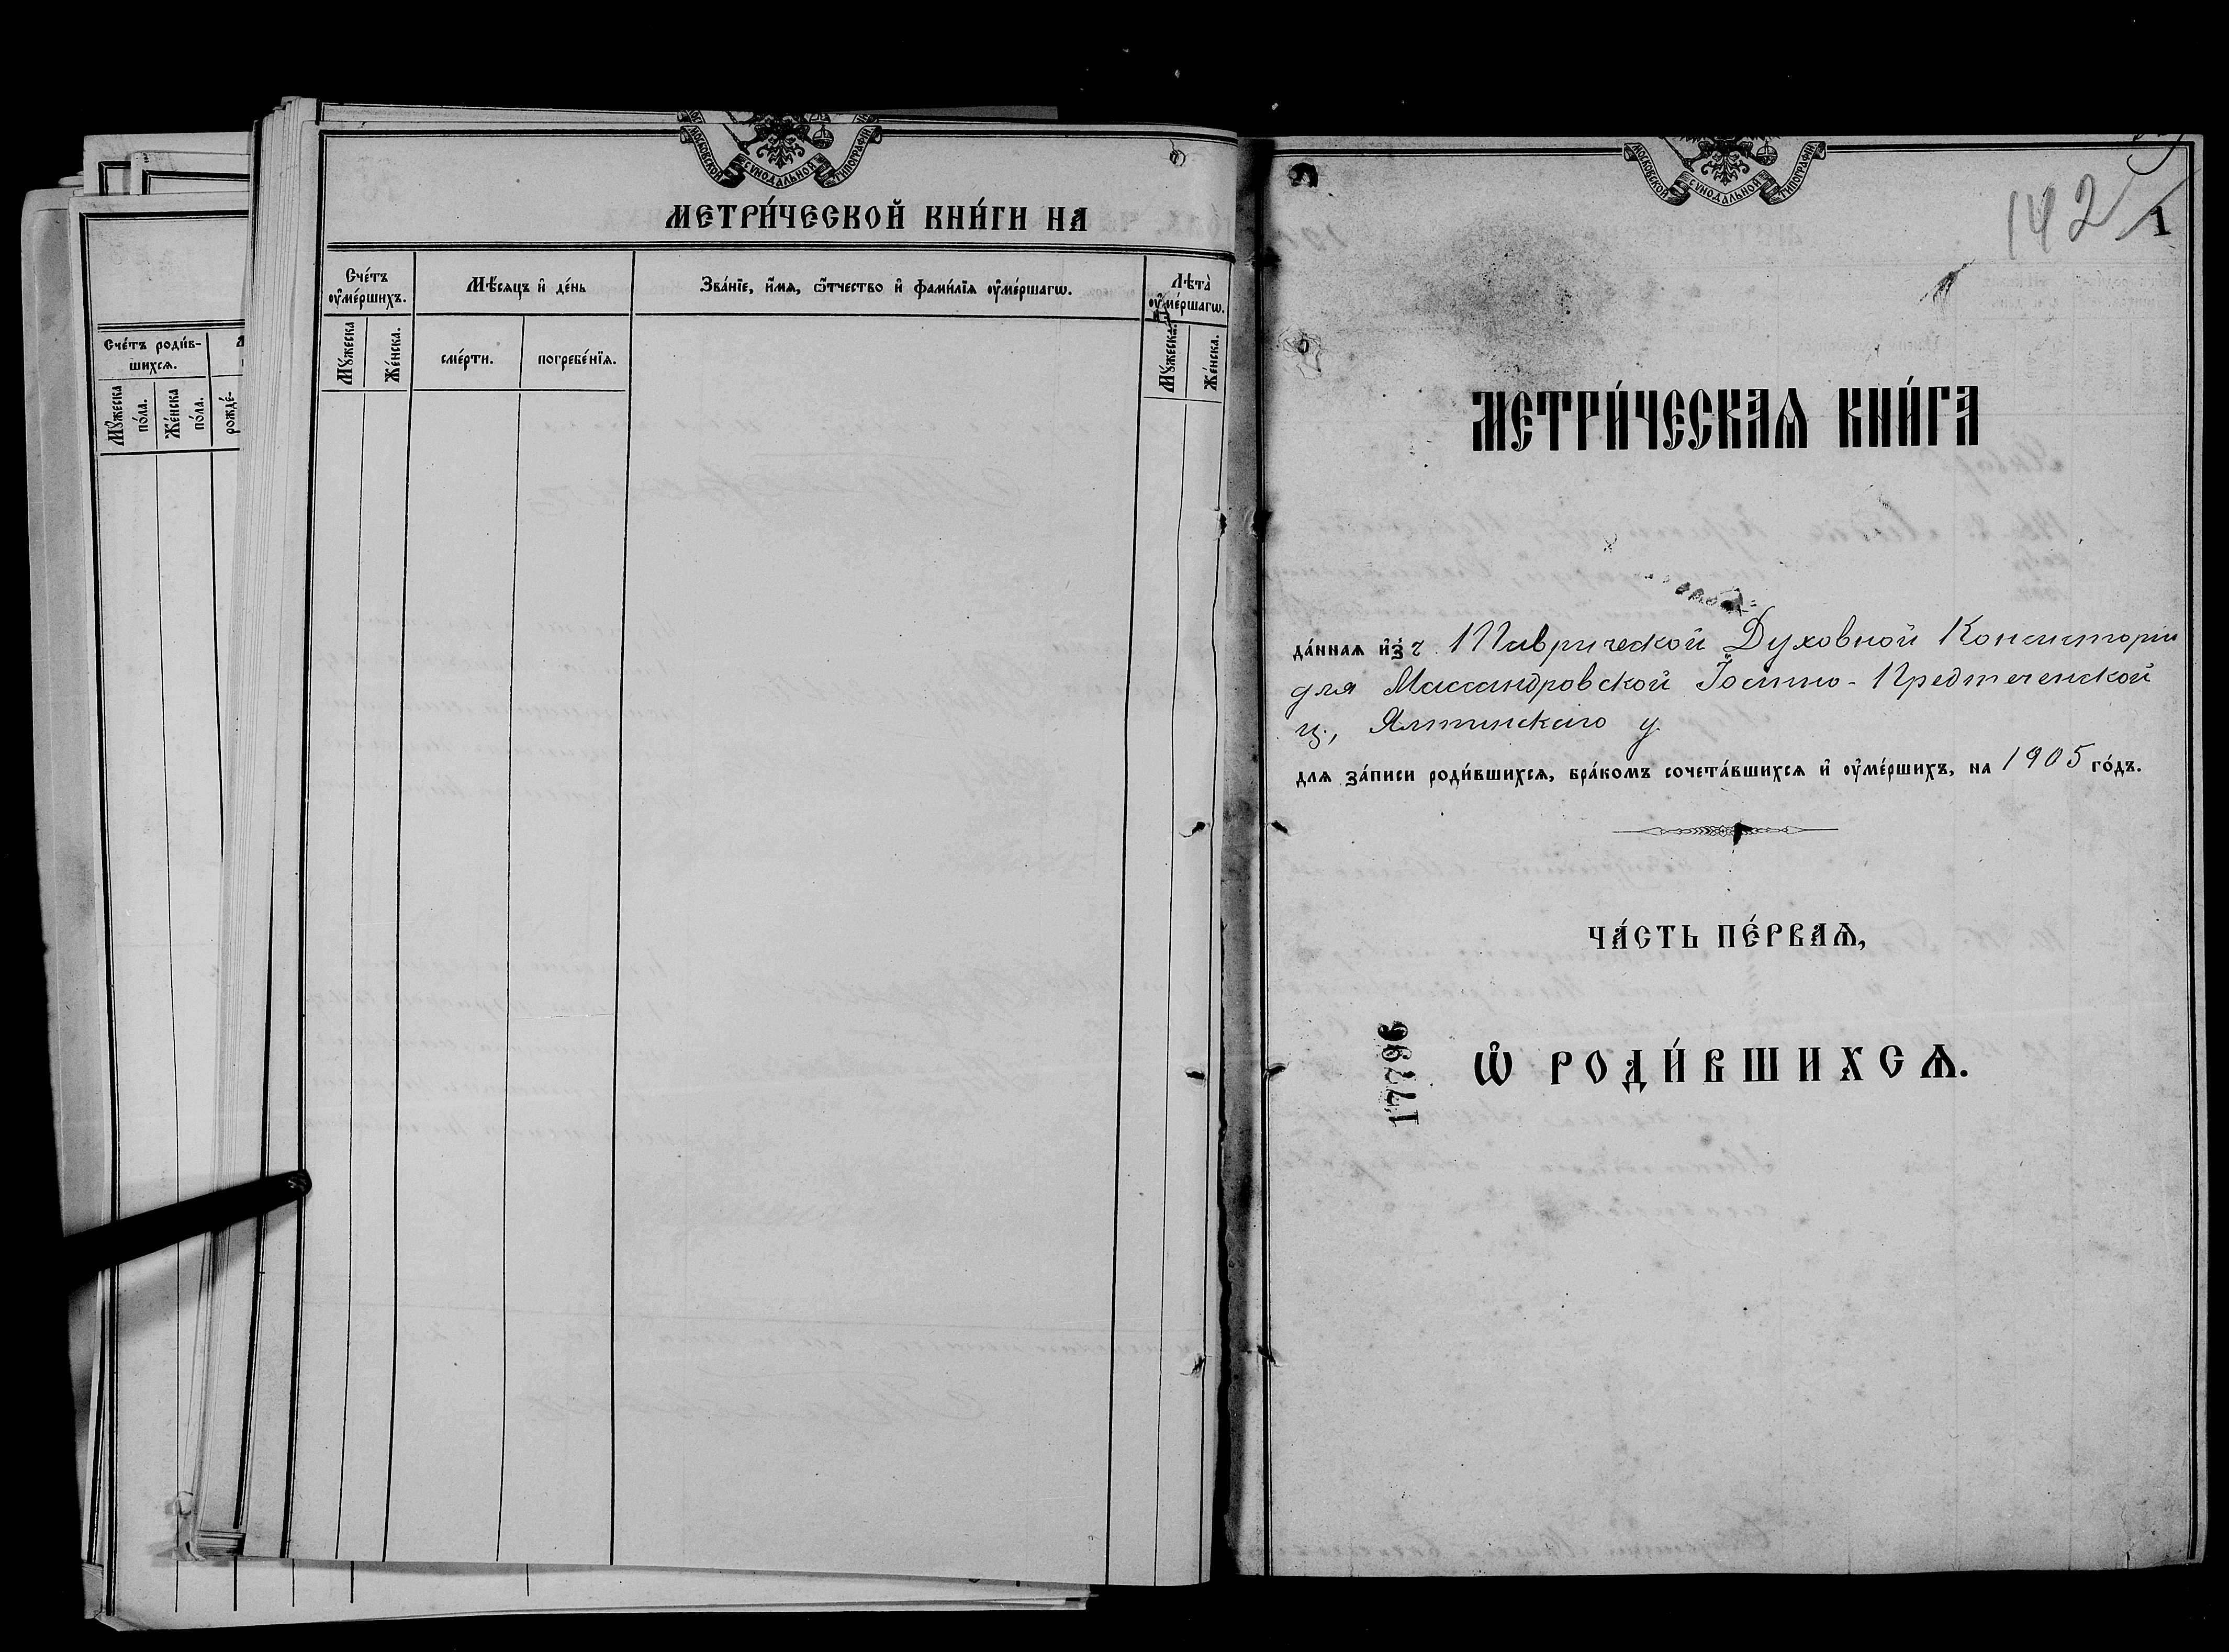 Счéтъ роди́в-
шихсѧ.
Мꙋ́жеска
пóла.
Жéнска
пóла.
рождé-
МОСКОВСКОЙ СѴНОДАЛЬНОЙ ТИПОГРАФІИ
МЕТРИ́ЧЕСКОЙ КНИ́ГИ НА
Счéтъ
ᲂу҆мéршихъ.
Мѣ́сѧцъ и҆ дéнь
Звáнїе, и҆́мѧ, ѻ҆́тчество и҆ фами́лїѧ ᲂу҆мéршагѡ.
Лѣ̑та̀
ᲂу҆мéршагѡ.
Мꙋ́жеска
Жéнска.
смéрти.
погребéнїѧ.
Мꙋ́жеска.
Жéнска.
МОСКОВСКОЙ СѴНОДАЛЬНОЙ ТИПОГРАФІИ
142
1
МЕТРИ́ЧЕСКАѦ КНИ́ГА
дáннаѧ и҆з̾ Таврической Духовной Консисторіи
для Массандровской Іоанно-Предтеченской
ц., Ялтинскаго у.
длѧ зáписи роди́вшихсѧ, брáкомъ сочетáвшихсѧ и҆ ᲂу҆мéршихъ, на 1905 гóдъ.
ЧÁСТЬ ПÉРВАѦ,
Ѽ РОДИ́ВШИХСѦ.
17796